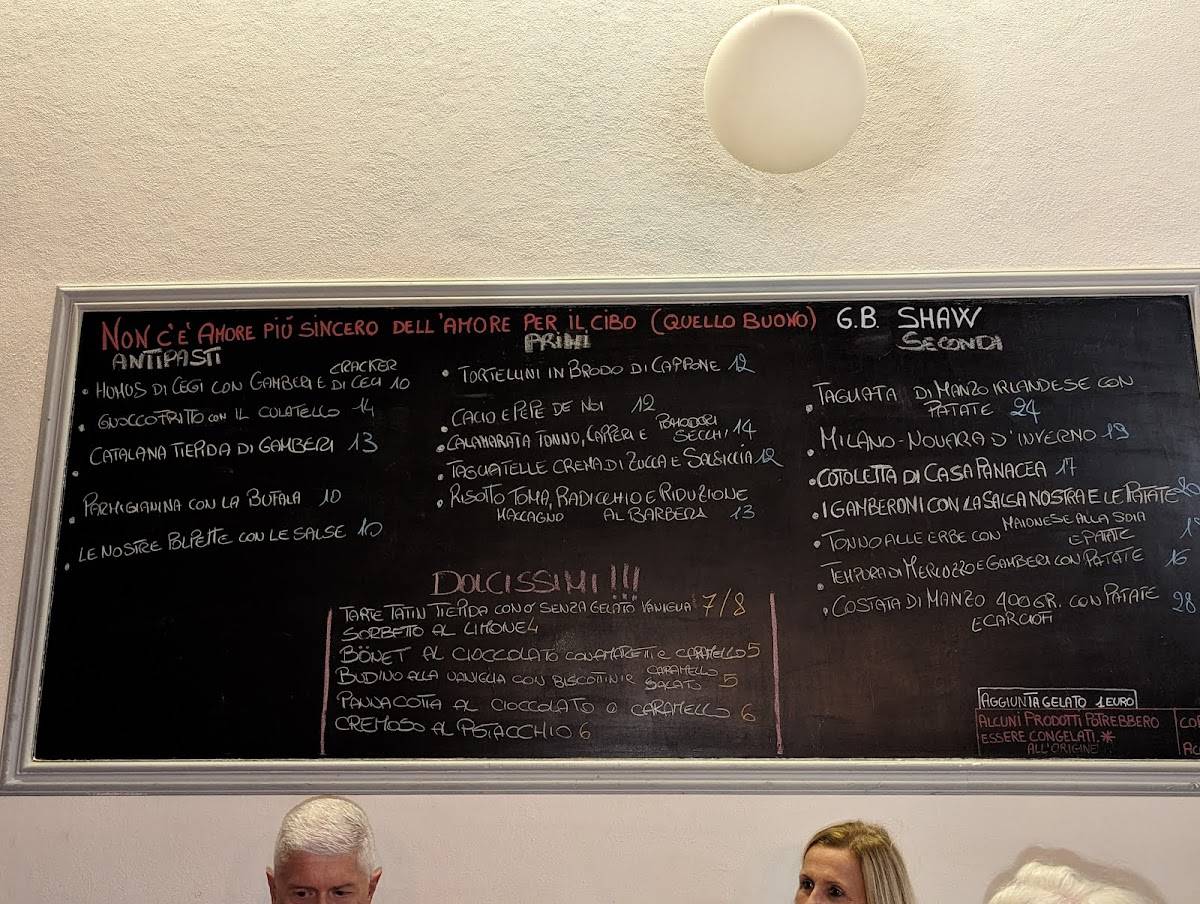 NON C'È AMORE PIÚ SINCERO DELL'AMORE PER IL CIBO (QUELLO BUONO) G.B. SHAW
ANTIPASTI
CRACKER
• HOMUS DI CECI CON GAMBERI E DI CECI 10
• GNOCCO FRITTO CON IL CULATELLO 14
• CATALANA TIEPIDA DI GAMBERI 13
• PARMIGIANINA CON LA BUFALA 10
• LE NOSTRE POLPETTE CON LE SALSE 10
PRIMI
• TORTELLINI IN BRODO DI CAPPONE 12
• CACIO E PEPE DE NOI 12
POMODORI
• CALAMARATA TONNO, CAPPERI E SECCHI 14
• TAGLIATELLE CREMA DI ZUCCA E SALSICCIA 12
• RISOTTO TOMA, RADICCHIO E RIDUZIONE
MACCAGNO AL BARBERA 13
SECONDI
• TAGLIATA DI MANZO IRLANDESE CON
PATATE 24
• MILANO-NOVARA D'INVERNO 19
• COTOLETTA DI CASA PANACEA 17
• I GAMBERONI CON LA SALSA NOSTRA E LE PATATE
MAIONESE ALLA SOIA
• TONNO ALLE ERBE CON E PATATE
• TEMPORA DI MERLUZZO E GAMBERI CON PATATE 16
• COSTATA DI MANZO 400 GR. CON PATATE 28
E CARCIOFI
DOLCISSIMI!!!
TARTE TATIN TIEPIDA CON O SENZA GELATO VANIGLIA 7/8
SORBETTO AL LIMONE 4
BÖNET AL CIOCCOLATO CON AMARETTI E CARAMELLO 5
CARAMELLO
BUDINO ALLA VANIGLIA CON BISCOTTINI E SALATO 5
PANNACOTTA AL CIOCCOLATO O CARAMELLO 6
CREMOSO AL PISTACCHIO 6
AGGIUNTA GELATO 1 EURO
ALCUNI PRODOTTI POTREBBERO
ESSERE CONGELATI *
ALL'ORIGINE